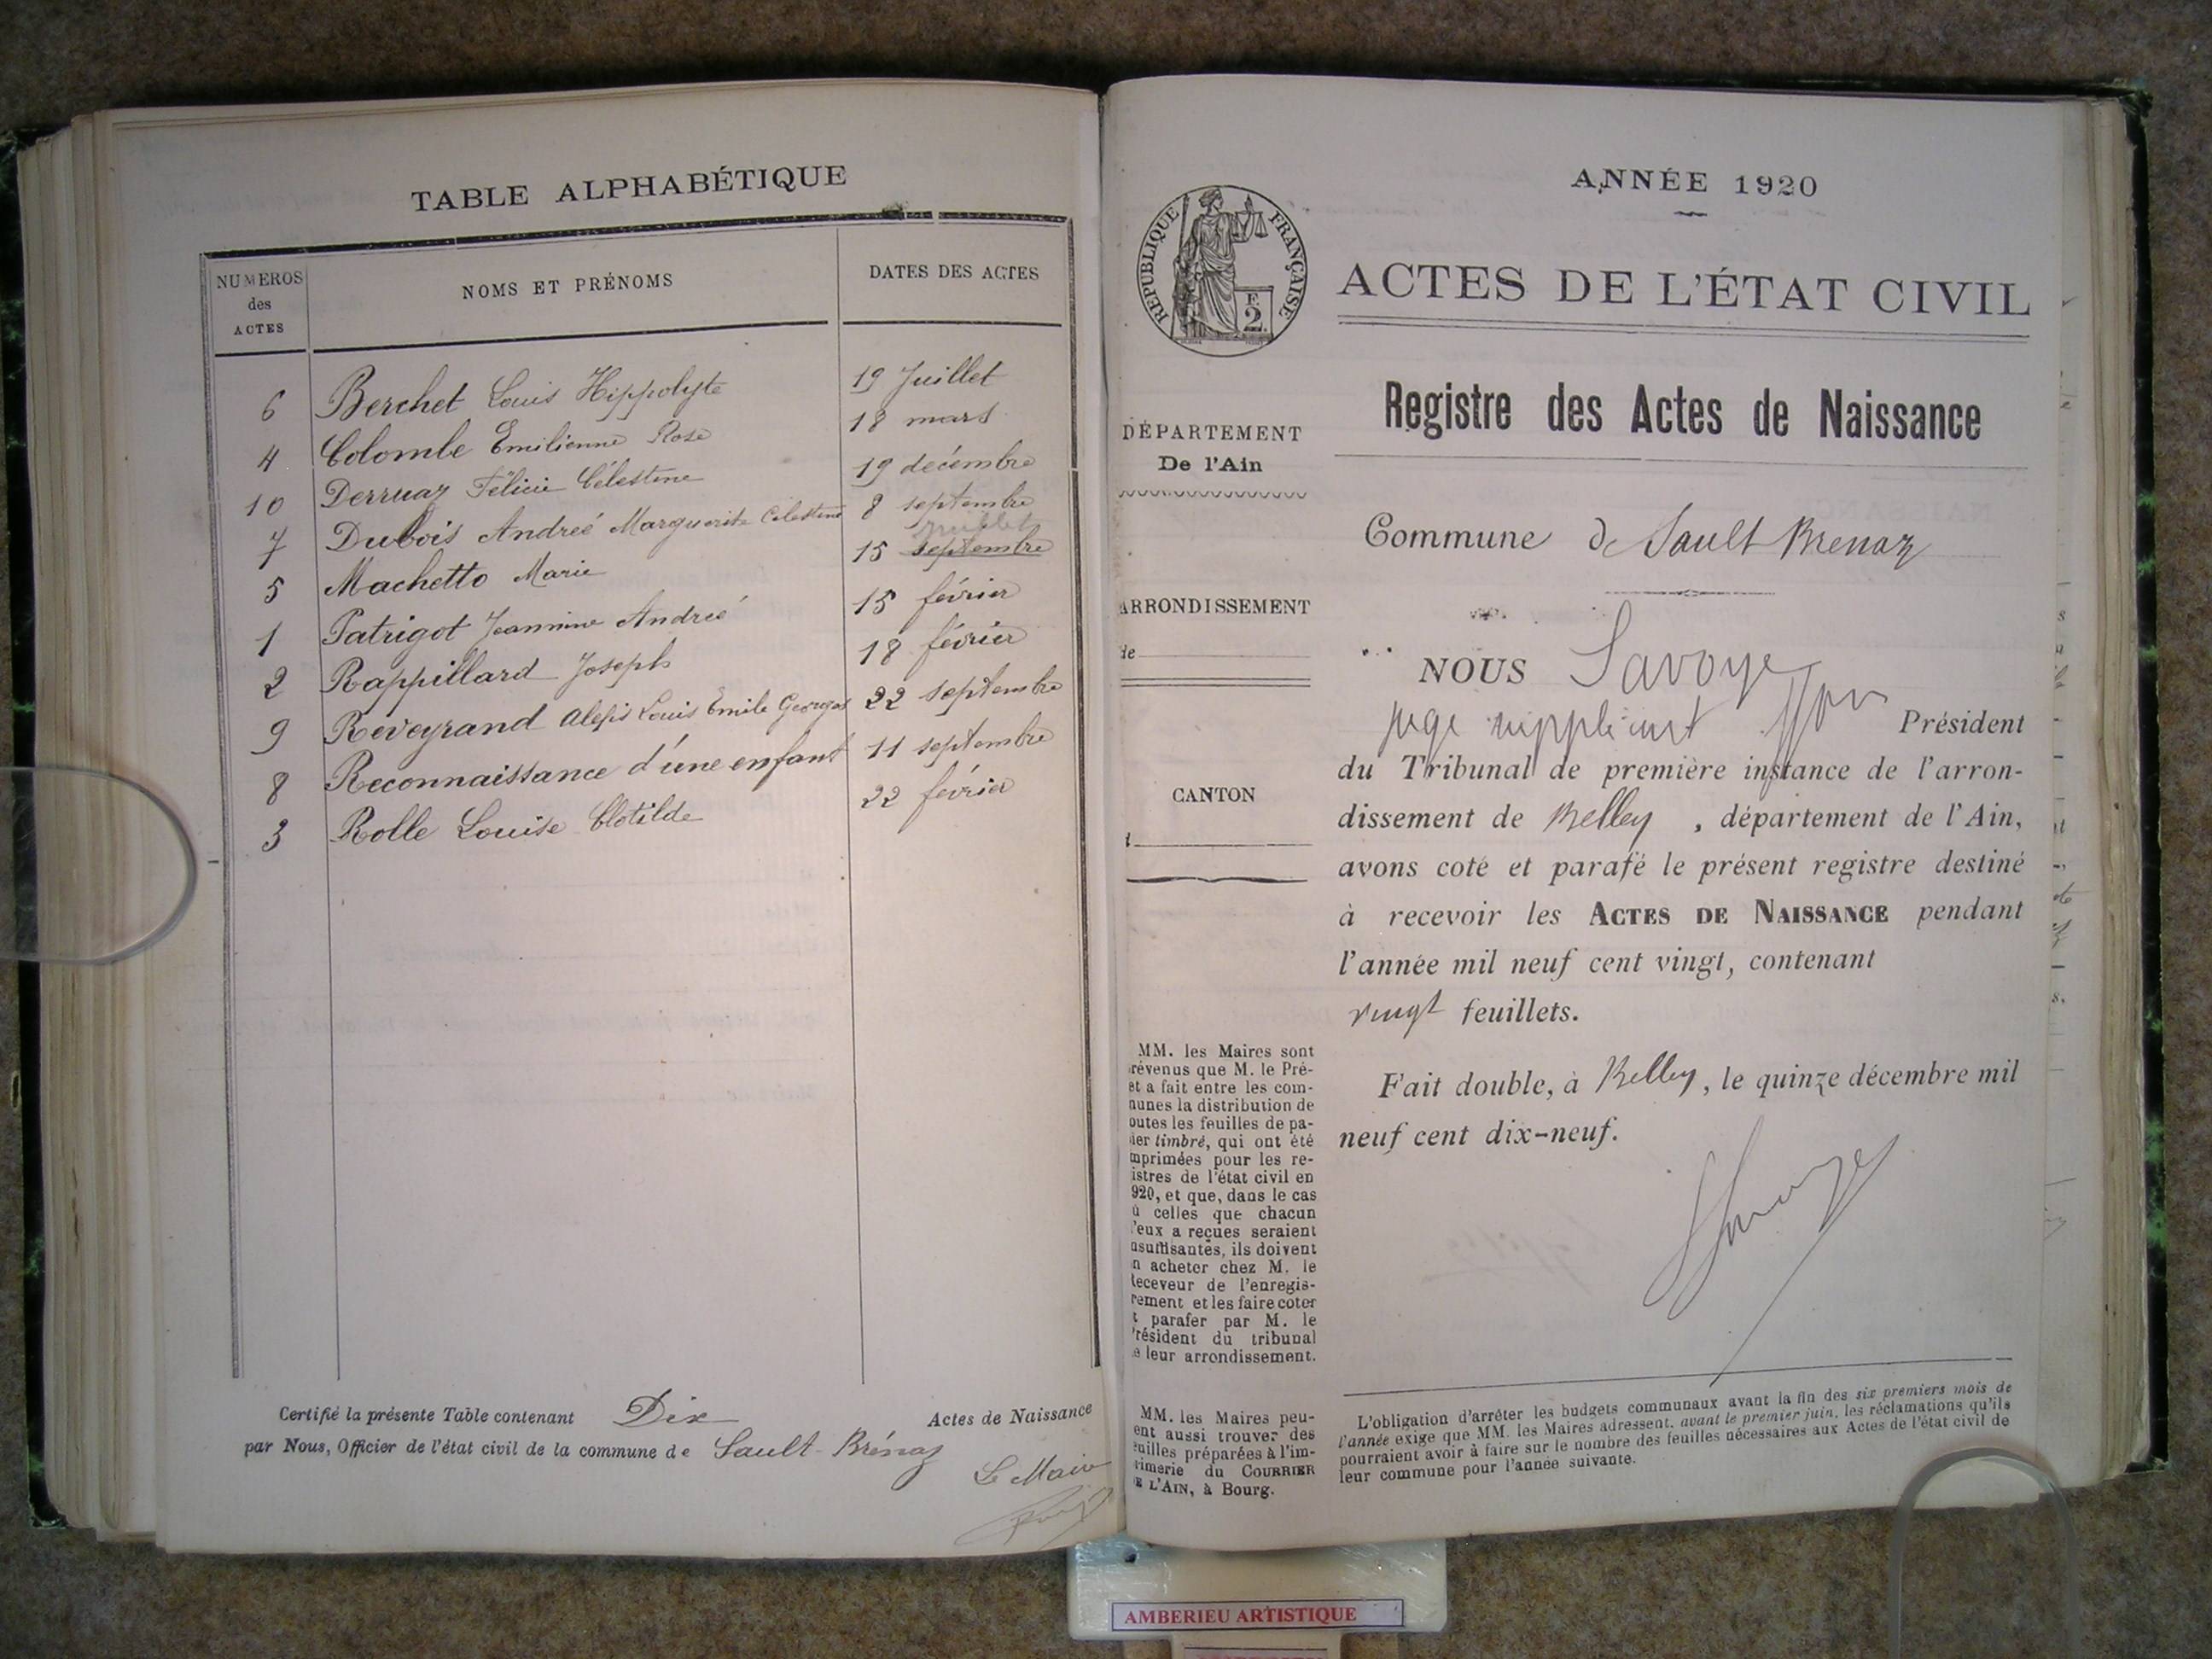 TABLE ALPHABÉTIQUE
NUMÉROS
des
ACTES
NOMS ET PRÉNOMS
DATES DES ACTES
6 Berchet Louis Hippolyte 19 Juillet
4 Colombe Emilienne Rose 18 mars
10 Derruaz Félicie Célestine 19 décembre
7 Dubois Andreé Marguerite Célestine 8 septembre
juillet
5 Machetto Marie 15 septembre
1 Patrigot Jeannine Andreé 15 février
2 Rappillard Joseph 18 février
9 Reveyrand Alexis Louis Emile Georges 22 septembre
8 Reconnaissance d'une enfant 11 septembre
3 Rolle Louise Clotilde 22 février
Certifié la présente Table contenant Dix Actes de Naissance
par Nous, Officier de l'état civil de la commune de Sault-Brénaz
Le Maire
ANNÉE 1920
RÉPUBLIQUE FRANÇAISE
F.
2
ACTES DE L'ÉTAT CIVIL
Registre des Actes de Naissance
DÉPARTEMENT
De l'Ain
ARRONDISSEMENT
de
CANTON
Commune de Sault Brenaz
NOUS Savoye
juge suppléant ffon Président
du Tribunal de première instance de l'arron-
dissement de Belley, département de l'Ain,
avons coté et parafé le présent registre destiné
à recevoir les ACTES DE NAISSANCE pendant
l'année mil neuf cent vingt, contenant
vingt feuillets.
Fait double, à Belley, le quinze décembre mil
neuf cent dix-neuf.
MM. les Maires sont
révenus que M. le Pré-
et a fait entre les com-
nunes la distribution de
outes les feuilles de pa-
ier timbré, qui ont été
mprimées pour les re-
istres de l'état civil en
920, et que, dans le cas
ù celles que chacun
'eux a reçues seraient
nsuffisantes, ils doivent
n acheter chez M. le
Receveur de l'enregis-
rement et les faire coter
t parafer par M. le
résident du tribunal
e leur arrondissement.
MM. les Maires peu-
ent aussi trouver des
euilles préparées à l'im-
rimerie du COURRIER
E L'AIN, à Bourg.
L'obligation d'arrêter les budgets communaux avant la fin des six premiers mois de
l'année exige que MM. les Maires adressent, avant le premier juin, les réclamations qu'ils
pourraient avoir à faire sur le nombre des feuilles nécessaires aux Actes de l'état civil de
leur commune pour l'année suivante.
AMBERIEU ARTISTIQUE